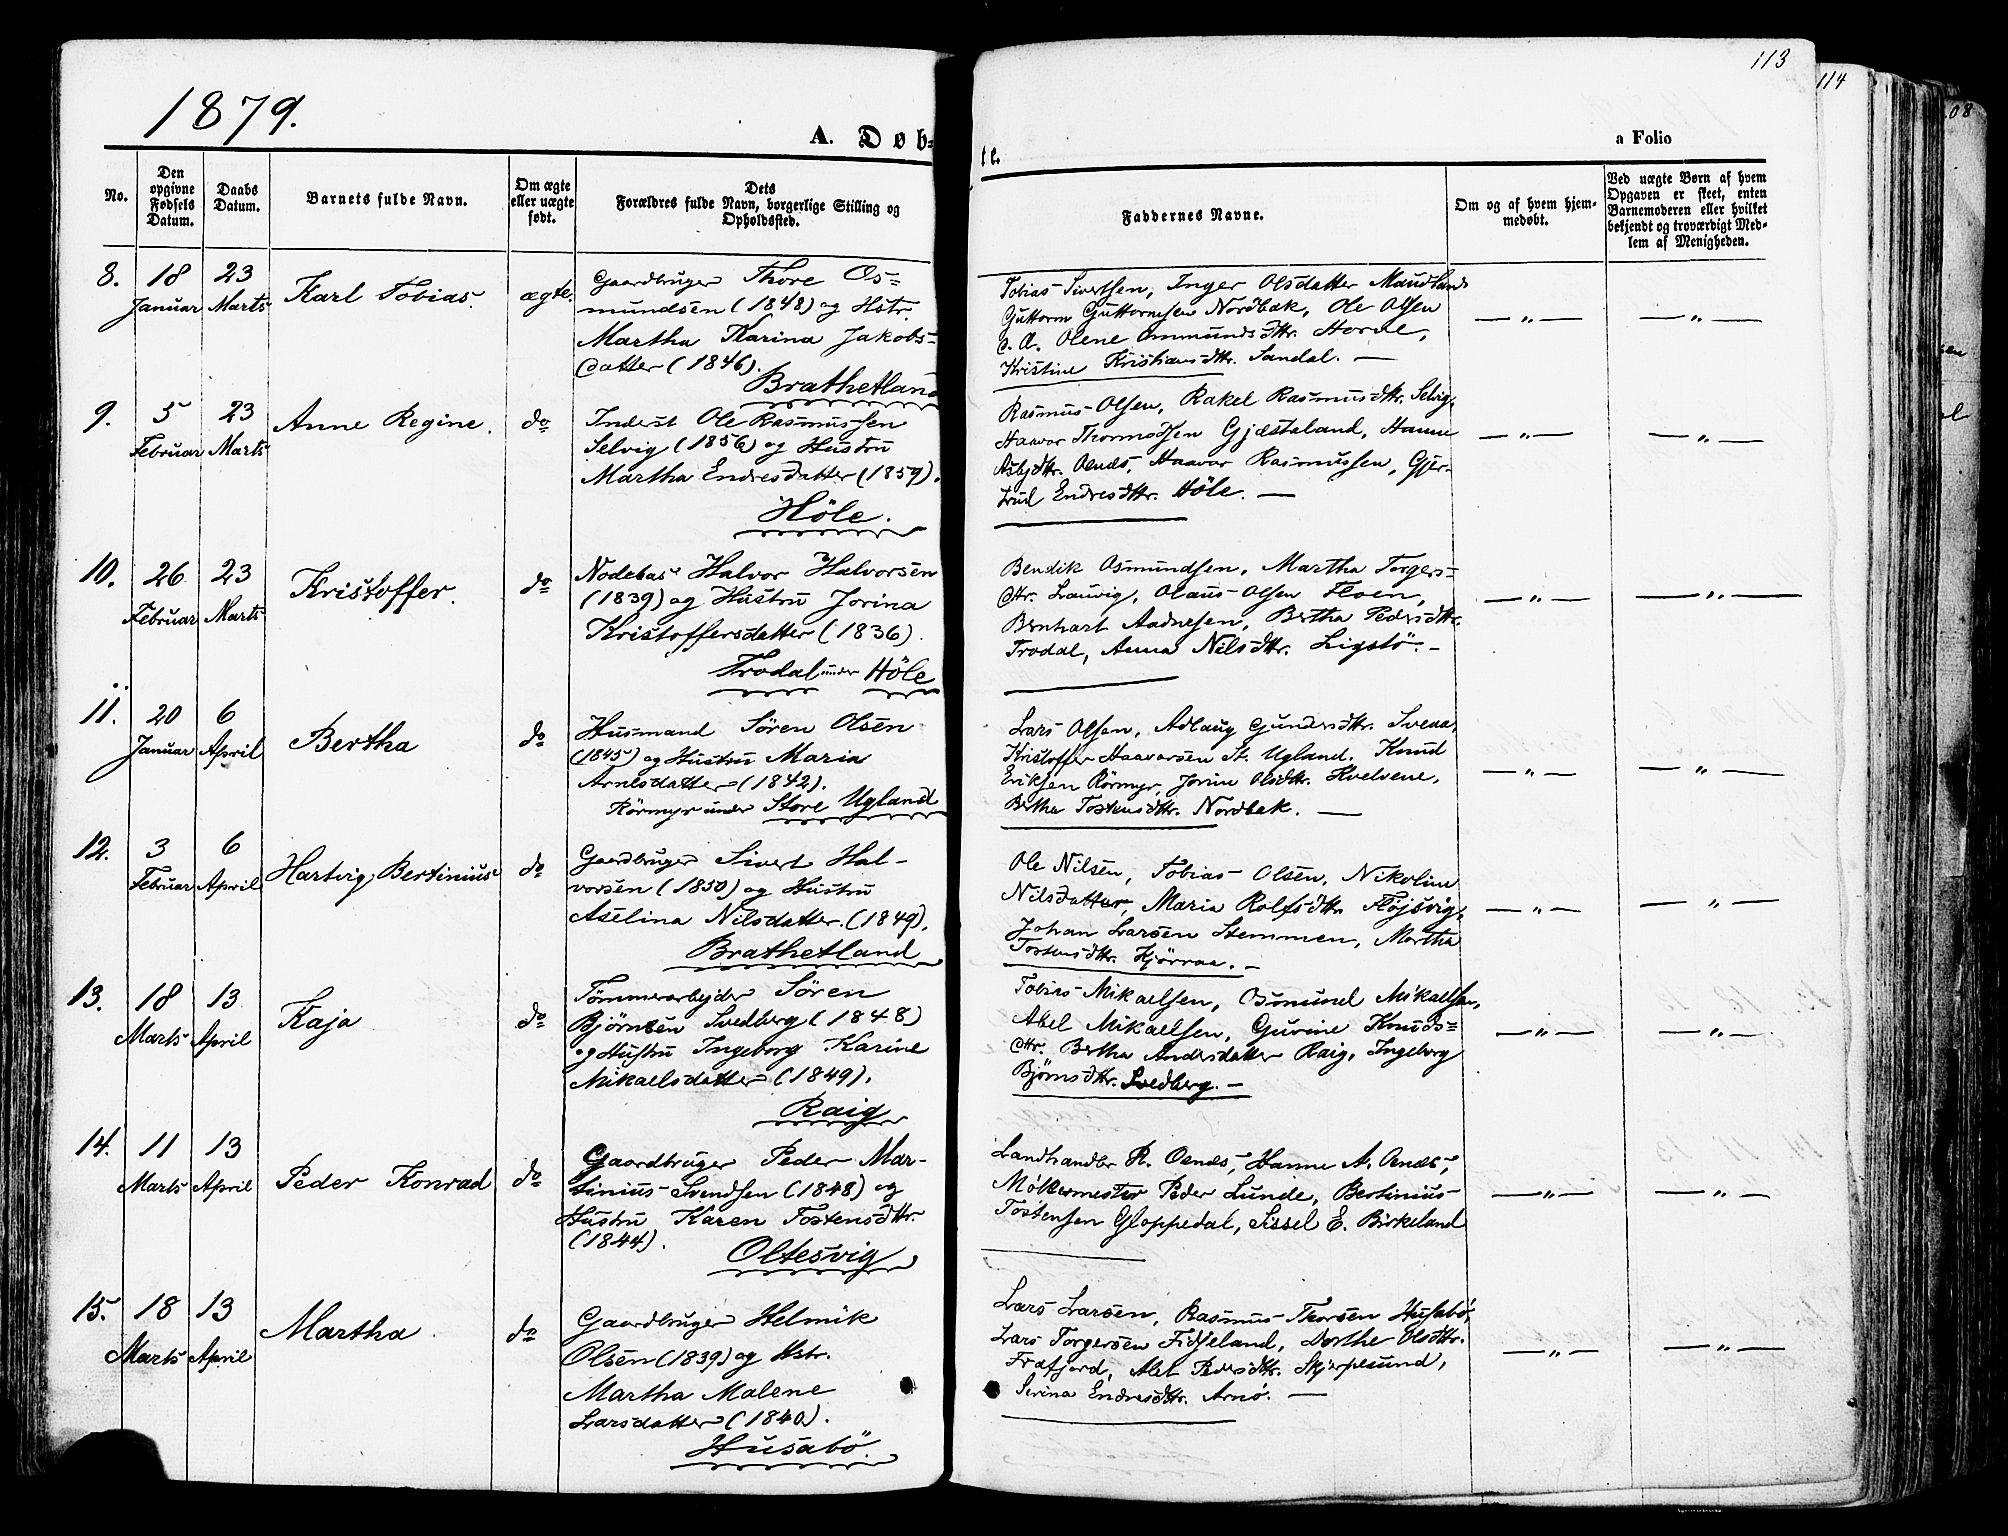 113
114
08
1879.
A. Døb=
te.
a Folio
No.
Den opgivne Fødsels Datum.
Daabs Datum.
Barnets fulde Navn.
Om ægte eller uægte født.
Dets Forældres fulde Navn, borgerlige Stilling og Opholdssted.
Faddernes Navne.
Om og af hvem hjemmedøbt.
Ved uægte Børn af hvem Opgaven er skeet, enten Barnemoderen eller hvilket bekjendt og troværdigt Medlem af Menigheden.
8. 18 Januar 23 Marts Karl Tobias. ægte.
Gaardbruger Thore Os=
mundsen (1848) og Hstr.
Martha Karina Jakobs=
datter (1846).
Brathetland
Tobias Sivertsen, Inger Olsdatter Maudland
Guttorm Guttormsen Nordbæk, Ole Olsen
s. A. Olene Ommundsdttr. Horne,
Kristine Kristiansdttr. Sandal. —
— „ — — „ —
9. 5 Februar 23 Marts Anne Regine. do
Inderst Ole Rasmussen
Selvig (1856) og Hustru
Martha Endresdatter (1859).
Höle.
Rasmus Olsen, Rakel Rasmusdttr. Selvig,
Haavar Thormodsen Gjæstaland, Hanne
Asbjdttr. Oends, Haavar Rasmussen, Gjer-
trud Endresdttr. Höle. —
— „ — — „ —
10. 26 Februar 23 Marts Kristoffer. do
Nodebas Halvor Halvorsen
(1839) og Hustru Jorina
Kristoffersdatter (1836).
Trodal under Höle
Bendik Osmundsen, Martha Torgers=
dttr. Lauvig, Olaus Olsen Floen,
Bernhart Aadnesen, Bertha Pedersdttr.
Trodal, Anna Nilsdttr. Ligstö. -
— „ — — „ —
11. 20 Januar 6 April Bertha do
Husmand Sören Olsen
(1845) og Hustru Maria
Arnesdatter (1842).
Körmyr under Store Ugland
Lars Olsen, Adlaug Gundersdttr. Svena,
Kristoffer Haavorsen St. Ugland. Knud
Eriksen Körmyr, Jorine Olsdttr. Kvelvene,
Bertha Tostensdttr. Nordbæk. —
— „ — — „ —
12. 3 Februar 6 April Hartvig Bertinius do
Gaardbruger Sivert Hal-
vorsen (1850) og Hustru
Aselina Nilsdatter. (1849).
Brathetland
Ole Nilsen, Tobias Olsen, Nikoline
Nilsdatter, Maria Rolfsdttr. Fløjsvig,
Johan Larsen Stemmen, Martha
Tostensdttr. Kjörraa. -
— „ — — „ —
13. 18 Marts 13 April Kaja do
Tömmerarbejder Sören
Björnsen Svedberg (1848)
og Hustru Ingeborg Karine
Mikaelsdatter (1849).
Raig
Tobias Mikaelsen, Osmund Mikaelsen,
Abel Mikaelsen, Gurine Knuds=
dttr. Bertha Andersdatter Raig, Ingeborg
Björnsdttr. Svedberg. -
— „ — — „ —
14. 11 Marts 13 April Peder Konrad do
Gaardbruger Peder Mar-
tinius Svendsen (1848) og
Hustru Karen Tostensdttr.
(1844).
Oltesvig
Landhandler R. Oends, Hanne A. Oends,
Møkermester Peder Lunde, Bertinius
Tostensen Gloppedal, Sissel E. Birkeland
— „ — — „ —
15. 18 Marts 13 April Martha. do
Gaardbruger Helmik
Olsen (1839) og Hstr.
Martha Malene
Larsdatter (1840).
Husabö.
Lars Larsen, Rasmus Thorsen Husabö,
Lars Torgersen Fidjeland, Dorthe Olsdttr.
Frafjord, Alet Pedersdttr. Skjørpesund,
Serina Endresdttr. Arnö. —
— „ — — „ —